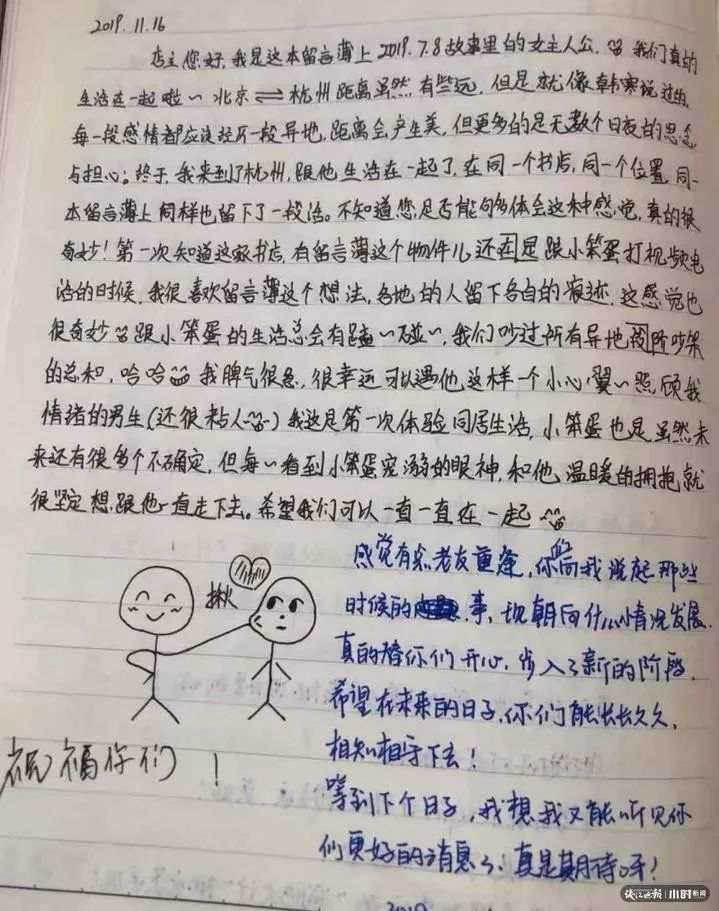 2019.11.16
店主您好,我是这本留言薄上2019.7.8故事里的女主人公. 我们真的
生活在一起啦~ 北京⇌杭州 距离虽然有些远,但是就像韩寒说过的,
每一段感情都应该经历一段异地,距离会产生美,但更多的是无数个日夜的思念
与担心;终于,我来到了杭州,跟他生活在一起了,在同一个书店,同一个位置,同一
本留言薄上同样也留下了一段话。不知道您是否能够体会这种感觉,真的很
奇妙!第一次知道这家书店,有留言薄这个物件儿还在是跟小笨蛋打视频电
话的时候,我很喜欢留言薄这个想法,各地的人留下各自的痕迹,这感觉也
很奇妙 跟小笨蛋的生活总会有磕~碰~,我们吵过所有异地 阶吵架
的总和,哈哈 我脾气很急,很幸运可以遇他这样一个小心翼~照顾我
情绪的男生(还很粘人) 我这是第一次体验同居生活,小笨蛋也是,虽然未
来还有很多个不确定,但每~看到小笨蛋宠溺的眼神,和他温暖的拥抱就
很坚定想跟他一直走下去。希望我们可以一直一直在一起
揪
感觉有点老友重逢,你们向我说起那些
时候的 事,现朝向什么情况发展.
真的替你们开心,步入了新的阶段,
希望在未来的日子,你们能长长久久,
相知相守下去!
等到下个日子,我想我又能听见你
们更好的消息了!真是期待呀!
祝福你们!
2019
钱江晚报 小时新闻